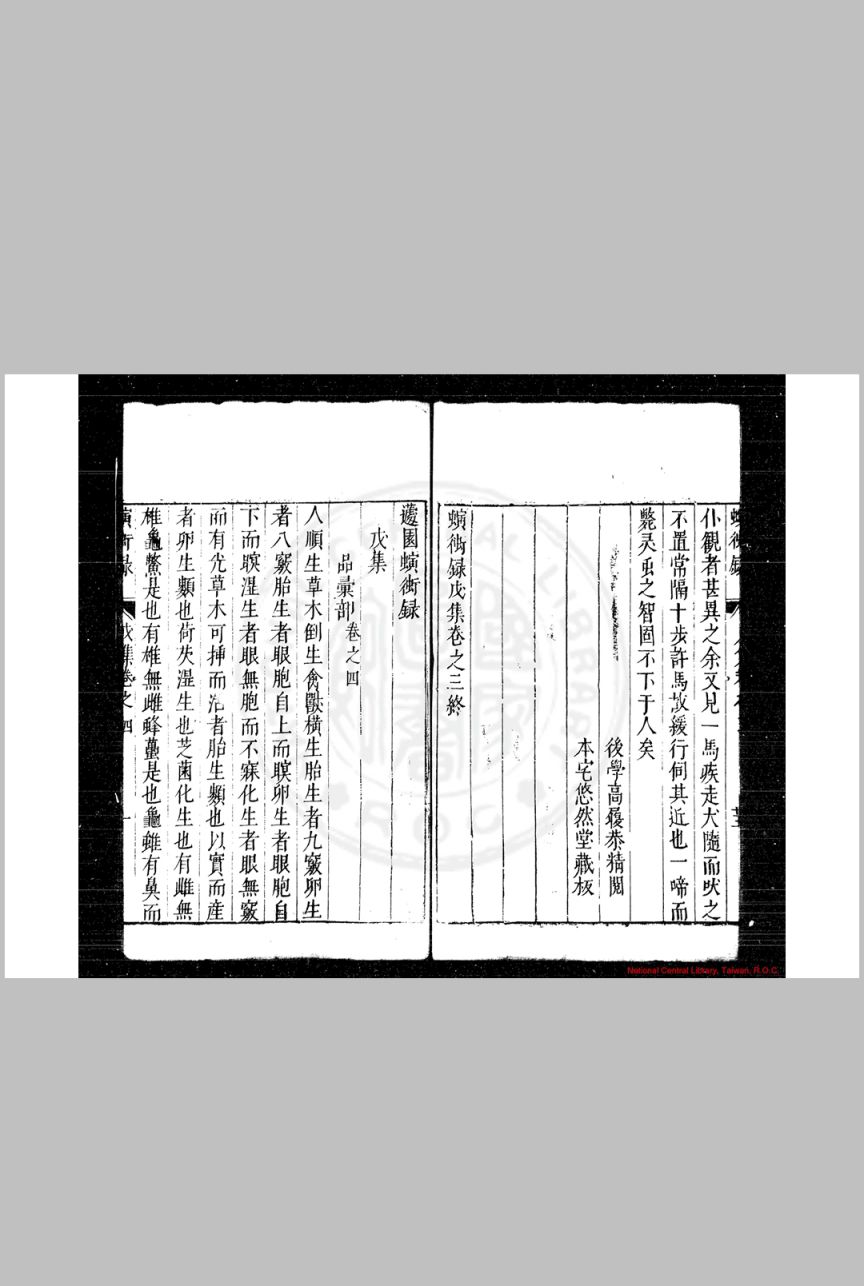 螾衖録
仆觀者甚異之余又見一馬疾走犬隨而吠之
不置常隔十步許馬故緩行伺其近也一啼而
斃灵虫之智固不下于人矣
後學高履恭精閲
本宅悠然堂藏板
螾衖録戊集卷之三終
蘧園螾衖録
戊集
品彚部卷之四
人順生草木倒生禽獸横生胎生者九竅卵生
者八竅胎生者眼胞自上而瞑卵生者眼胞自
下而瞑湿生者眼無胞而不寐化生者眼無竅
而有光草木可挿而活者胎生類也以實而産
者卵生類也荷芡湿生也芝菌化生也有雌無
雄龜鱉是也有雄無雌蜂蠆是也龜雖有臭而
戊集卷之四
一
National Central Library, Taiwan, R.O.C